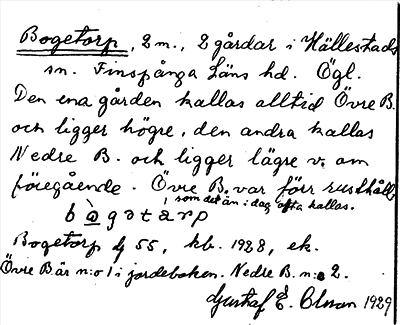 Bogetorp, 2 m., 2 gårdar i Hällestads
sn. Finspånga Läns hd. Ögl.
Den ena gården kallas alltid Övre B.
och ligger högre, den andra kallas
Nedre B. och ligger lägre v. om
föregående. Övre B. var förr rusthåll
, som det än i dag ofta kallas.
Bogetorp dj 55, kb. 1928, ek.
Övre B. är n:o 1 i jordeboken. Nedre B. n:o 2.
Gustaf E. Olsson 1929